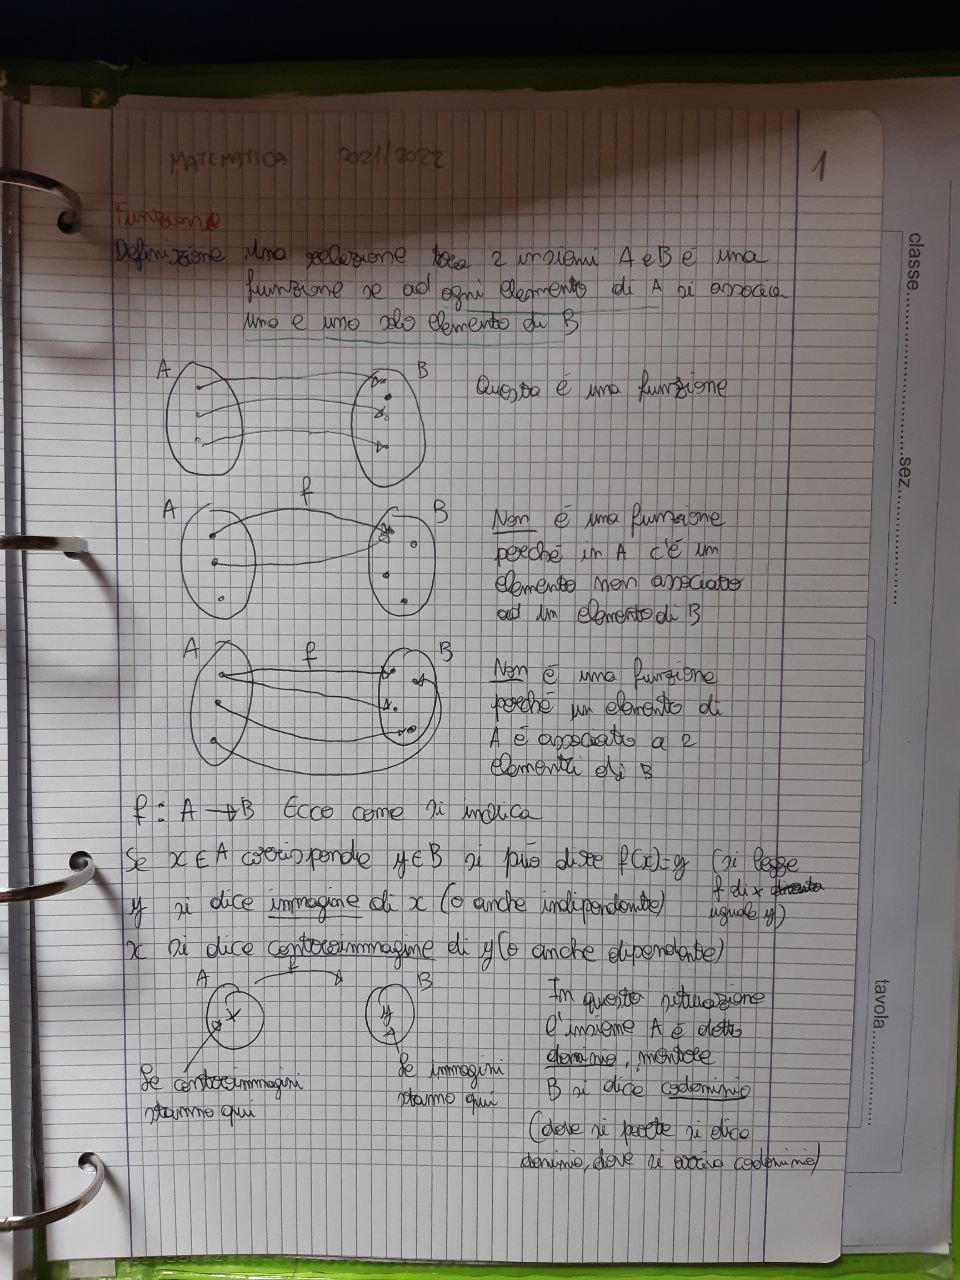 MATEMATICA 2021/2022
1
Funzione
Definizione Una relazione tra 2 insiemi A e B è una
funzione se ad ogni elemento di A si associa
uno e uno solo elemento di B
A B Questa è una funzione
A f B Non è una funzione
perché in A c'è un
elemento non associato
ad un elemento di B
A f B Non è una funzione
perché un elemento di
A è associato a 2
elementi di B
f: A → B Ecco come si indica
Se x ∈ A corrisponde y ∈ B si può dire f(x)=y (si legge
f di x
uguale y)
y si dice immagine di x (o anche indipendente)
x si dice controimmagine di y (o anche dipendente)
A f B
x y
Le controimmagini
stanno qui
Le immagini
stanno qui
In questa situazione
l'insieme A è detto
dominio, mentre
B si dice codominio
(dove si parte si dice
dominio, dove si arriva codominio)
classe
sez.
tavola